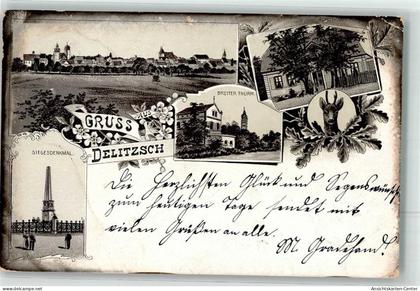 GRUSS
aus
DELITZSCH
BREITER THURM
SIEGESDENKMAL
Die Herzlichsten Glück und Segenswünsche
zum heutigen Tage sendet mit
vielen Grüßen an alle.
M. Gradehand!
www.delcampe.net
Ansichtskarten-Center